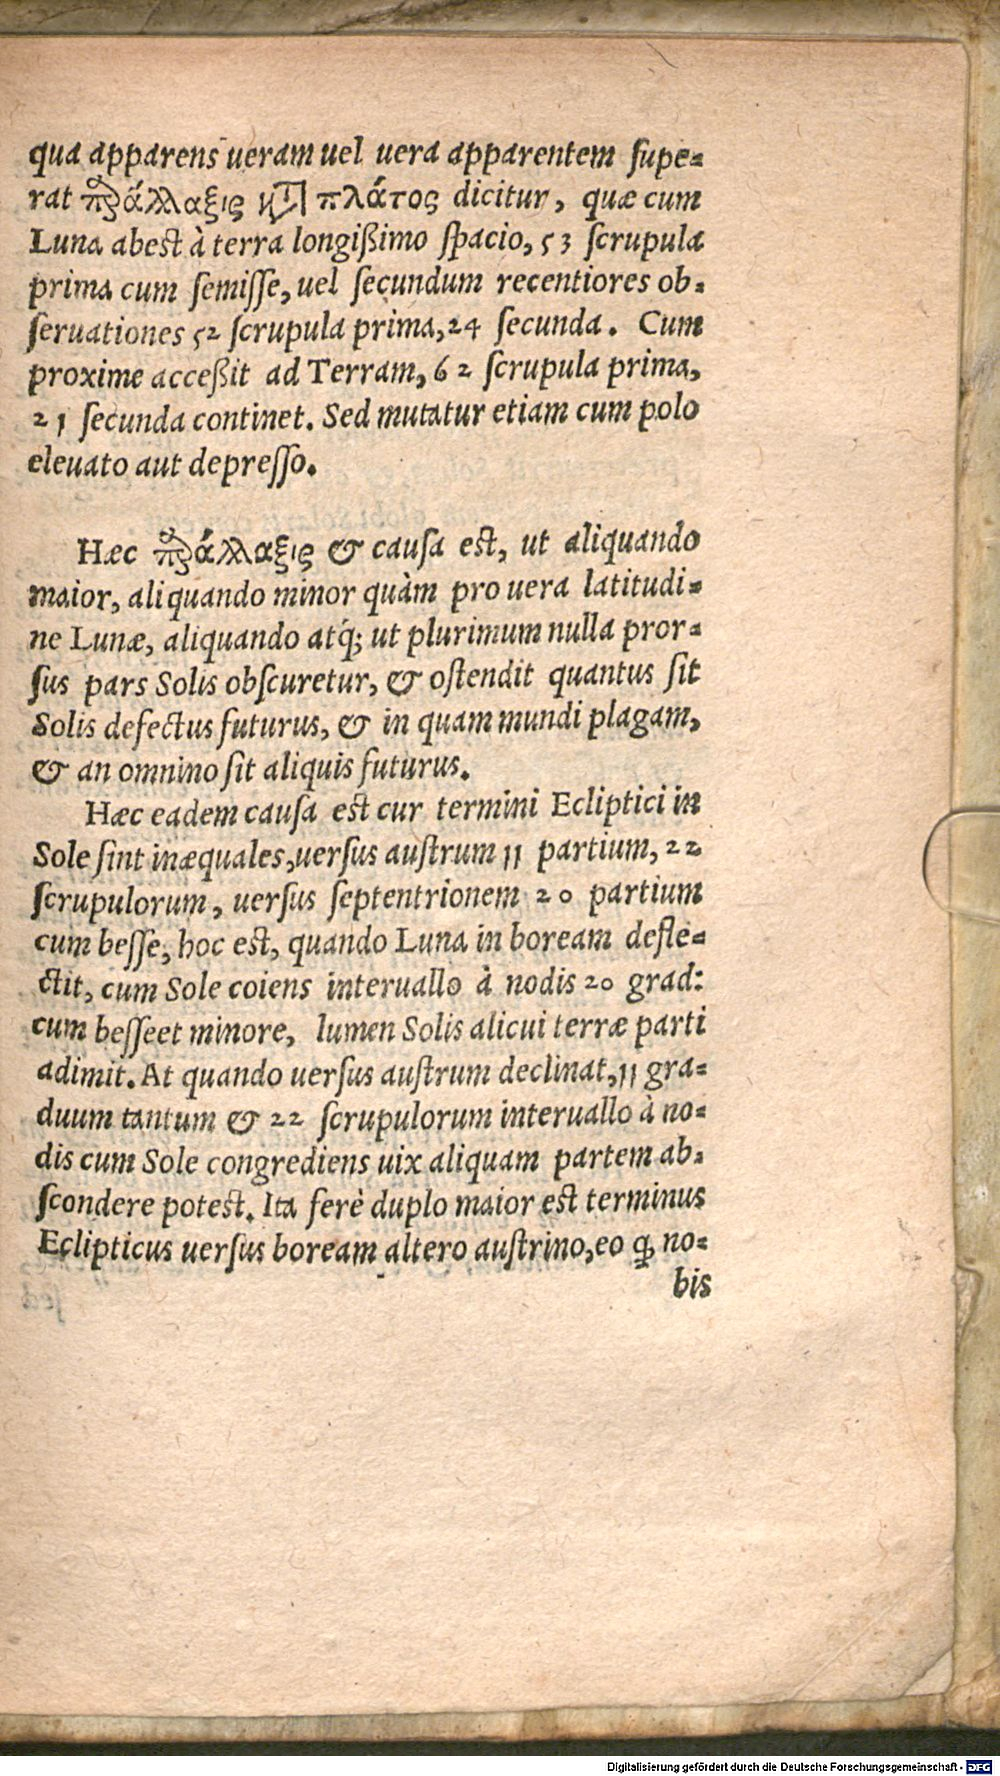 qua apparens ueram uel uera apparentem ſupe-
rat παράλλαξις κατὰ πλάτος dicitur, quæ cum
Luna abest à terra longißimo ſpacio, 53 ſcrupula
prima cum ſemiſſe, uel ſecundum recentiores ob-
ſeruationes 52 ſcrupula prima, 24 ſecunda. Cum
proxime acceßit ad Terram, 62 ſcrupula prima,
21 ſecunda continet. Sed mutatur etiam cum polo
eleuato aut depreſſo.
Hæc παράλλαξις & cauſa est, ut aliquando
maior, aliquando minor quàm pro uera latitudi-
ne Lunæ, aliquando atq́; ut plurimum nulla pror-
ſus pars Solis obſcuretur, & oſtendit quantus ſit
Solis defectus futurus, & in quam mundi plagam,
& an omnino ſit aliquis futurus.
Hæc eadem cauſa est cur termini Ecliptici in
Sole ſint inæquales, uerſus auſtrum 11 partium, 22
ſcrupulorum, uerſus ſeptentrionem 20 partium
cum beſſe, hoc est, quando Luna in boream defle-
ctit, cum Sole coiens interuallo à nodis 20 grad:
cum beſſeet minore, lumen Solis alicui terræ parti
adimit. At quando uerſus auſtrum declinat, 11 gra-
duum tantum & 22 ſcrupulorum interuallo à no-
dis cum Sole congrediens uix aliquam partem ab-
ſcondere potest. Ita ferè duplo maior est terminus
Eclipticus uerſus boream altero auſtrino, eo ꝙ no-
bis
Digitalisierung gefördert durch die Deutsche Forschungsgemeinschaft - DFG